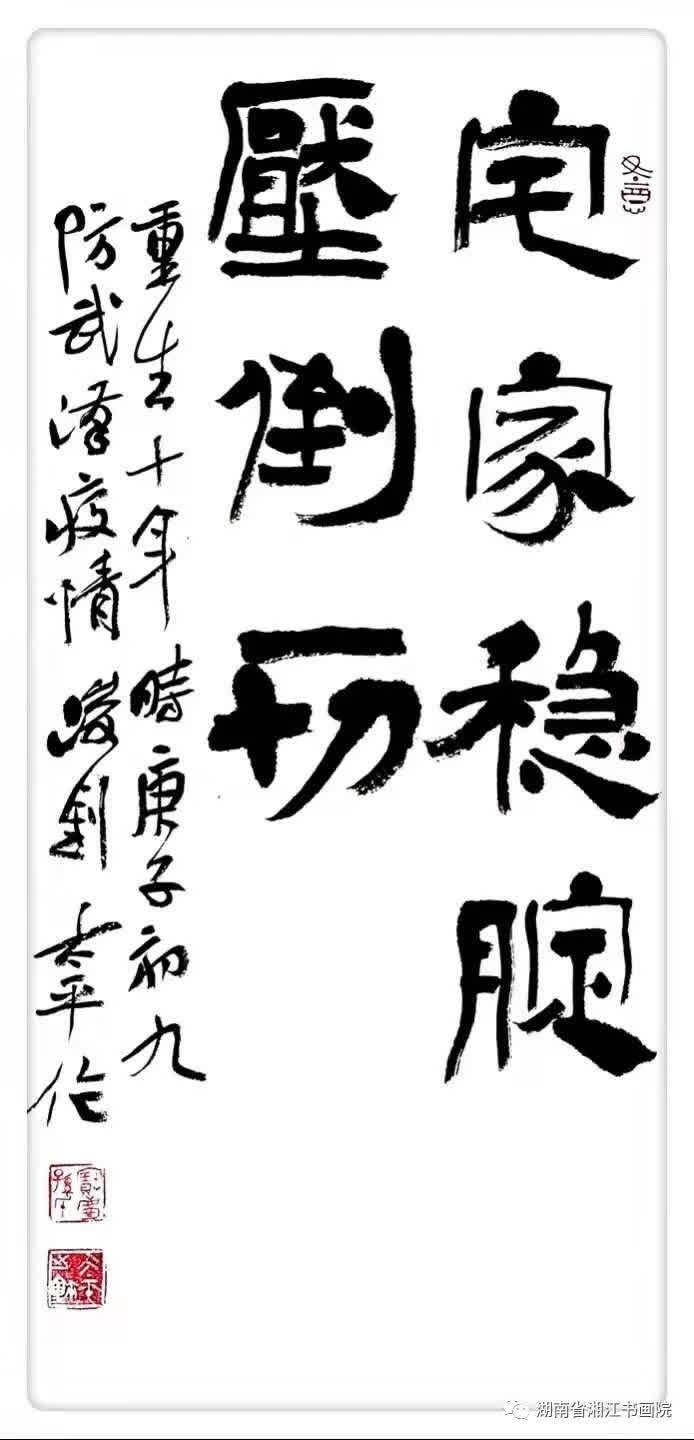 宅家稳腚
壓倒一切
重生十年時庚子初九
防武漢疫情 太平作
湖南省湘江书画院